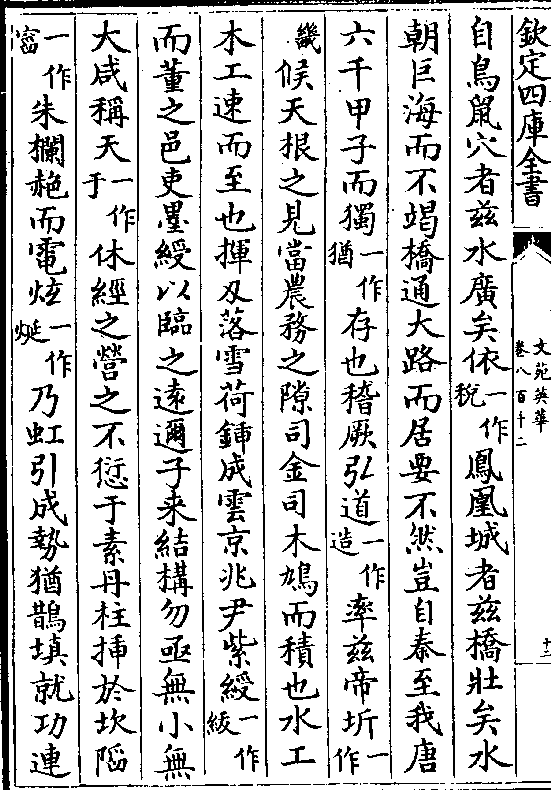 欽定四庫全書
文苑英華
卷八百十二
十三
自鳥鼠穴者兹水廣矣依一作稅鳳凰城者兹橋壯矣水
朝巨海而不竭橋通大路而居要不然豈自秦至我唐
六千甲子而獨一作猶存也稽厥弘道一作造率兹帝圻一作
畿候天根之見當農務之隙司金司木鳩而積也水工
木工速而至也揮刄落雪荷鍤成雲京兆尹紫綬一作綾
而董之邑吏墨綬以臨之遠邇子来結構勿亟無小無
大咸稱天一作于休經之營之不愆于素丹柱揷於坎䧟
一作窞朱欄赩而電炫一作烻乃虹引成勢猶鵲填就功連